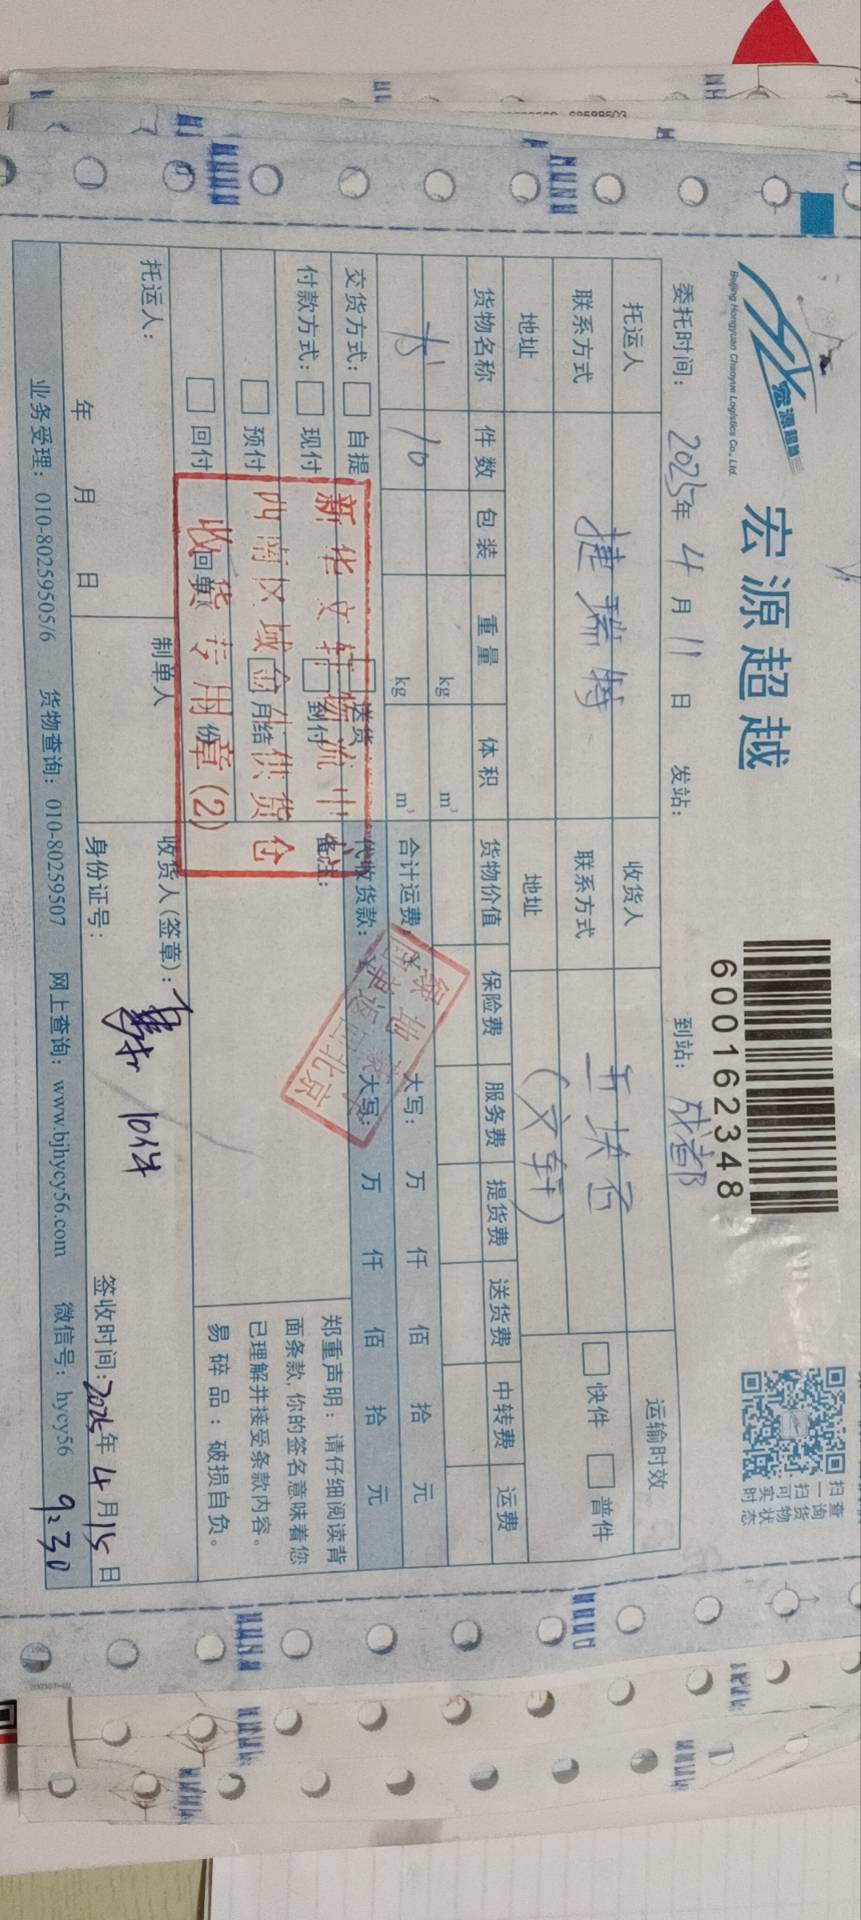 宏源超越
宏源超越
Beijing Hongyuan Chaoyue Logistics Co., Ltd.
6001162348
扫一扫可实时
查询货物状态
委托时间： 2025年 4月 11日 发站： 到站： 成都
托运人 捷瑞特 收货人 五块石 运输时效
联系方式 联系方式 (文轩) 快件 普件
地址 地址
货物名称 件数 包装 重量 体积 货物价值 保险费 服务费 提货费 送货费 中转费 运费
kg m³
书 10 kg m³ 合计运费 大写： 万 仟 佰 拾 元
交货方式： 自提 送货 代收货款： 大写： 万 仟 佰 拾 元
付款方式： 现付 到付 备注：
预付 月结
回付 回单 份
郑重声明：请仔细阅读背
面条款,你的签名意味着您
已理解并接受条款内容。
易碎品：破损自负。
新华文轩物流中心
西南区域 供货仓
收货专用章(2)
托运人： 制单人 收货人(签章)：
10件
年 月 日 身份证号： 签收时间： 2025年 4月 15日
9:30
业务受理：010-80259505/6 货物查询：010-80259507 网上查询：www.bjhycy56.com 微信号：hycy56